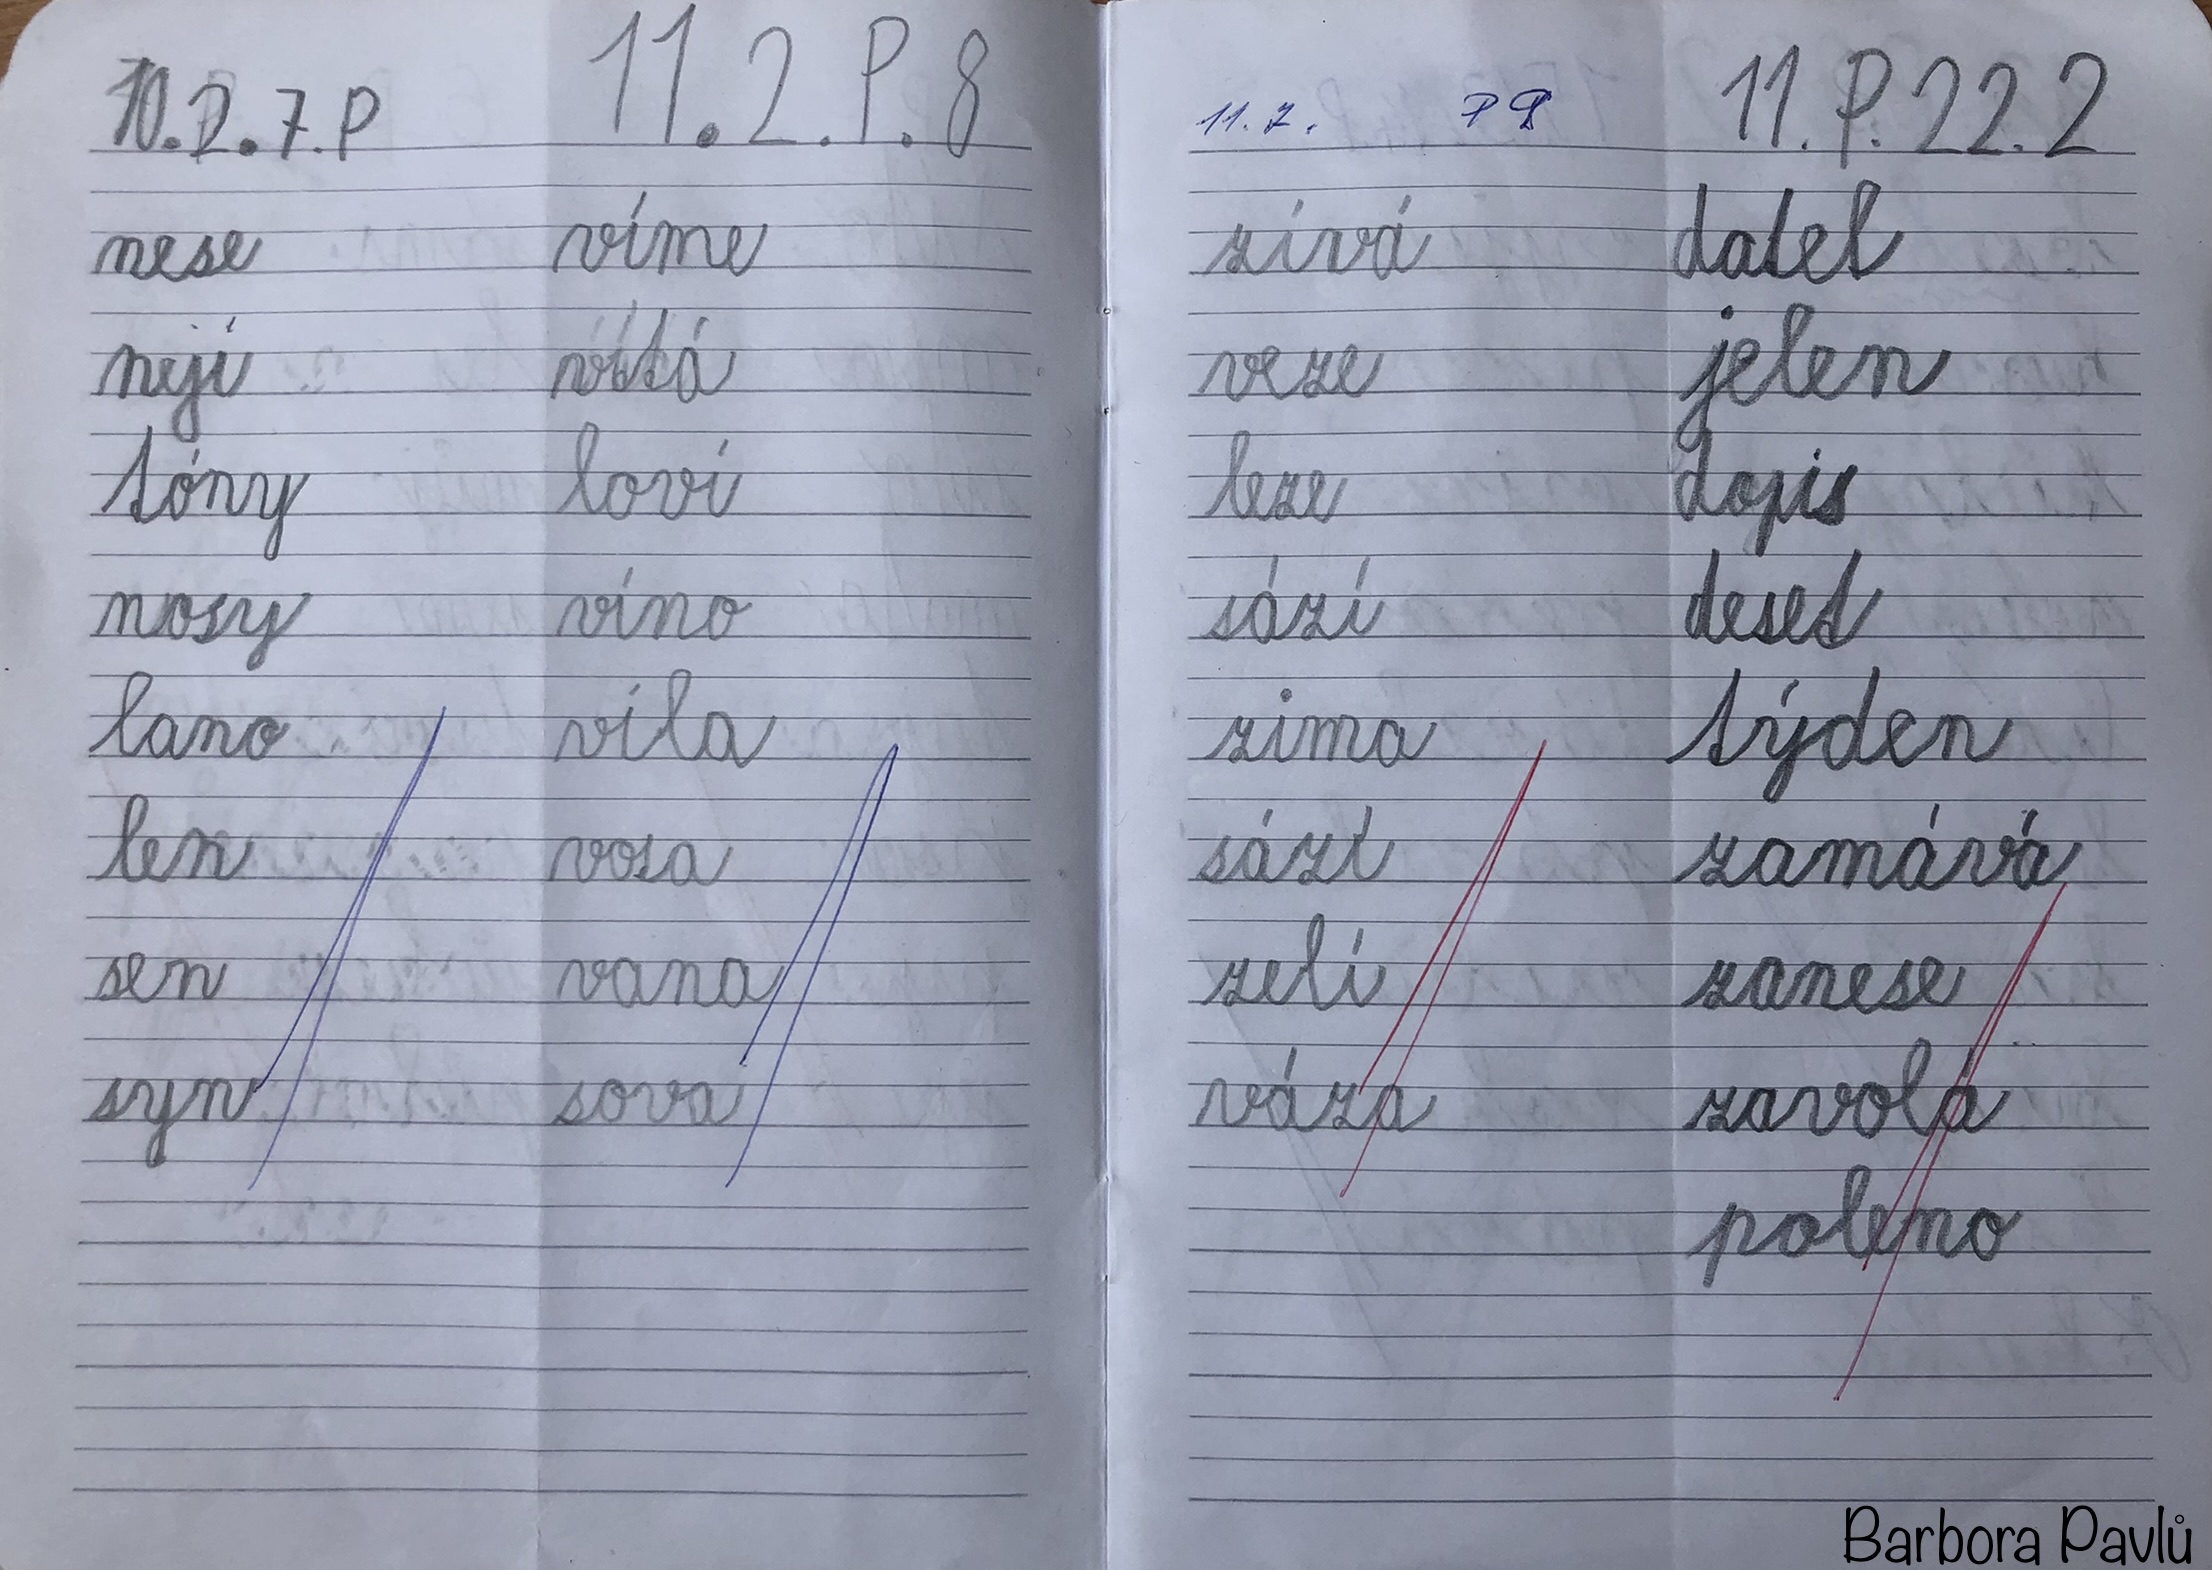 10.2.7.P
nese
nejí
tóny
nosy
lano
len
sen
syn
11.2.P.8
víme
vítá
loví
víno
víla
vosa
vana
sova
11.2. P9
zívá
veze
leze
sází
zima
sází
zelí
váza
11.P.22.2
datel
jelen
dopis
deset
týden
zamává
zanese
zavolá
poleno
Barbora Pavlů